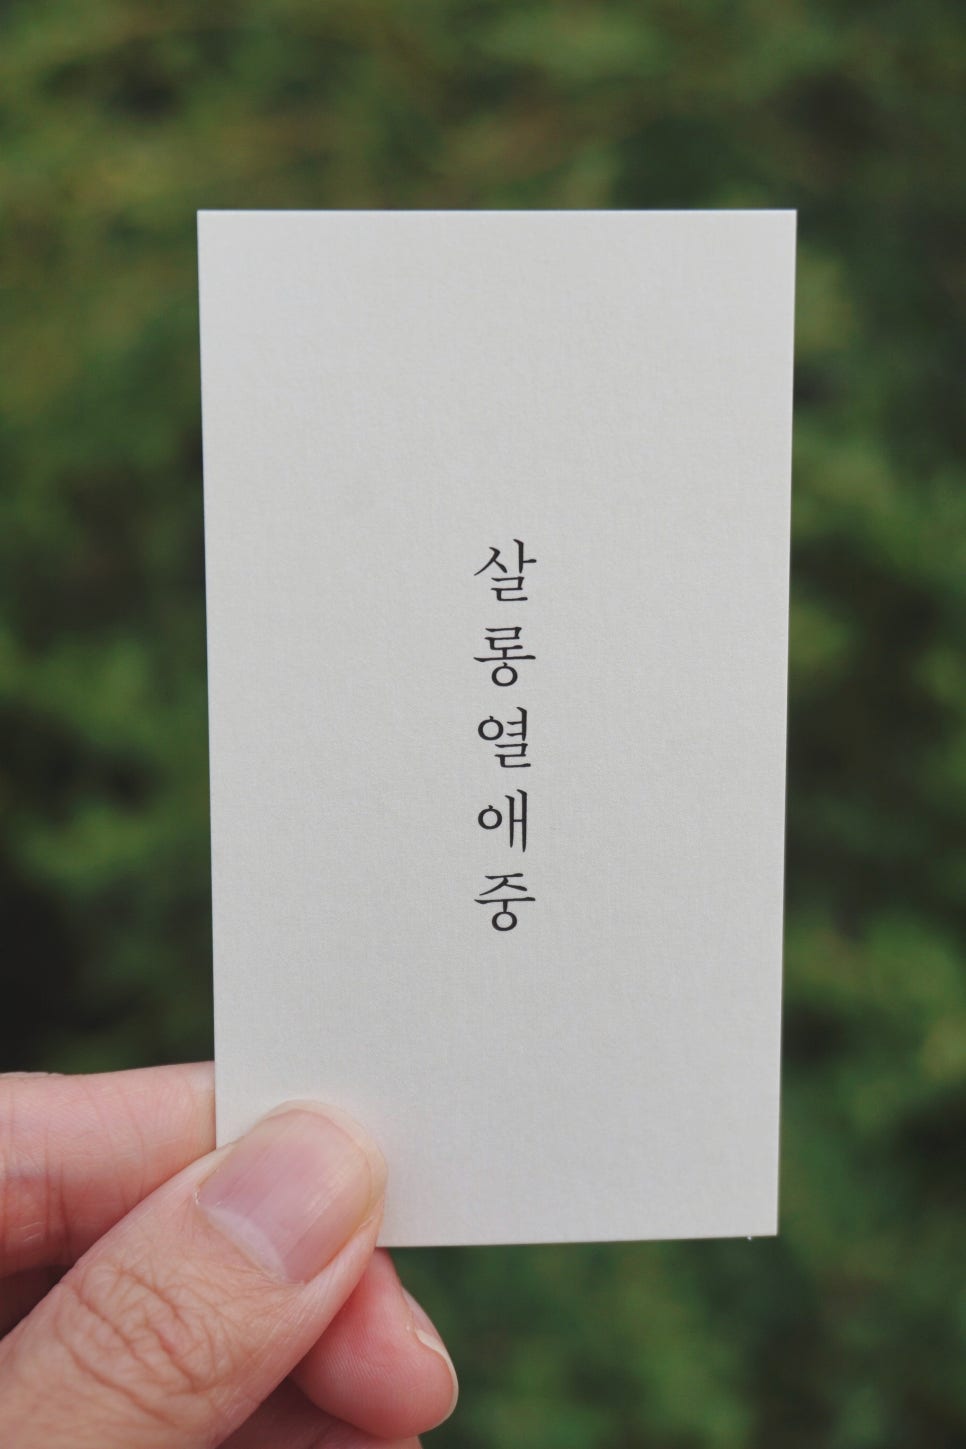 살롱열애중